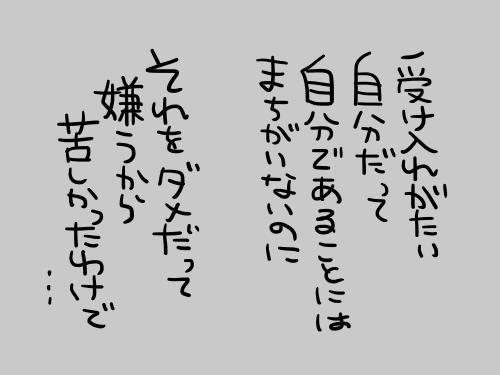 受け入れがたい
自分だって
自分であることには
まちがいないのに
それをダメだって
嫌うから
苦しかったわけで
…